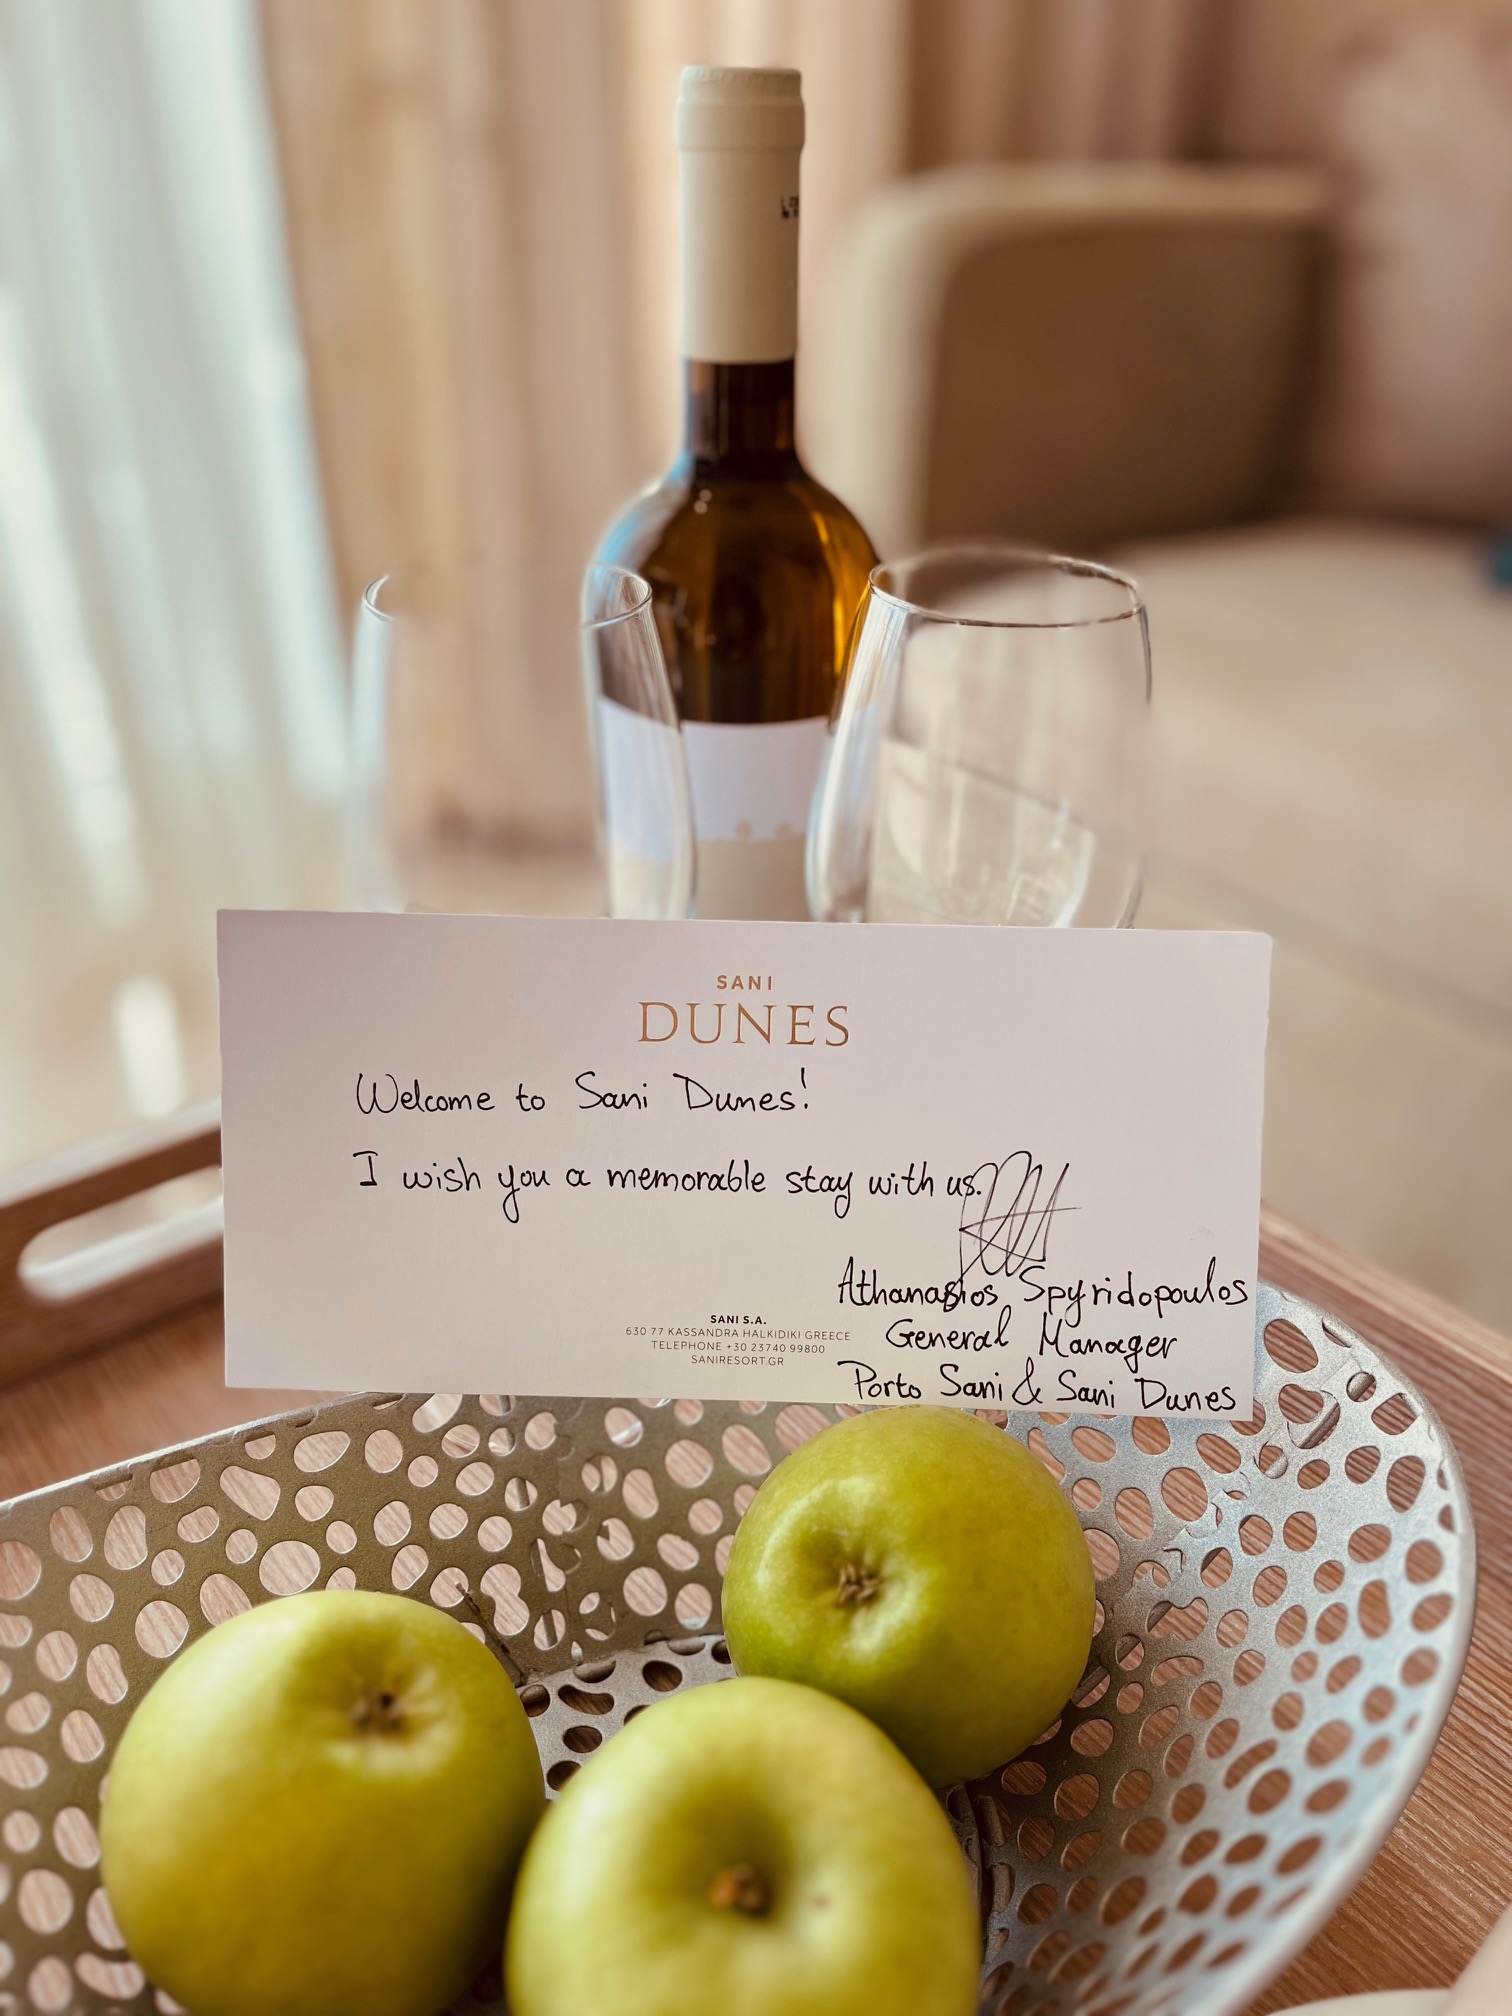 SANI
DUNES
Welcome to Sani Dunes!
I wish you a memorable stay with us.
Athanasios Spyridopoulos
General Manager
Porto Sani & Sani Dunes
SANI S.A.
630 77 KASSANDRA HALKIDIKI GREECE
TELEPHONE +30 23740 99800
SANIRESORT.GR